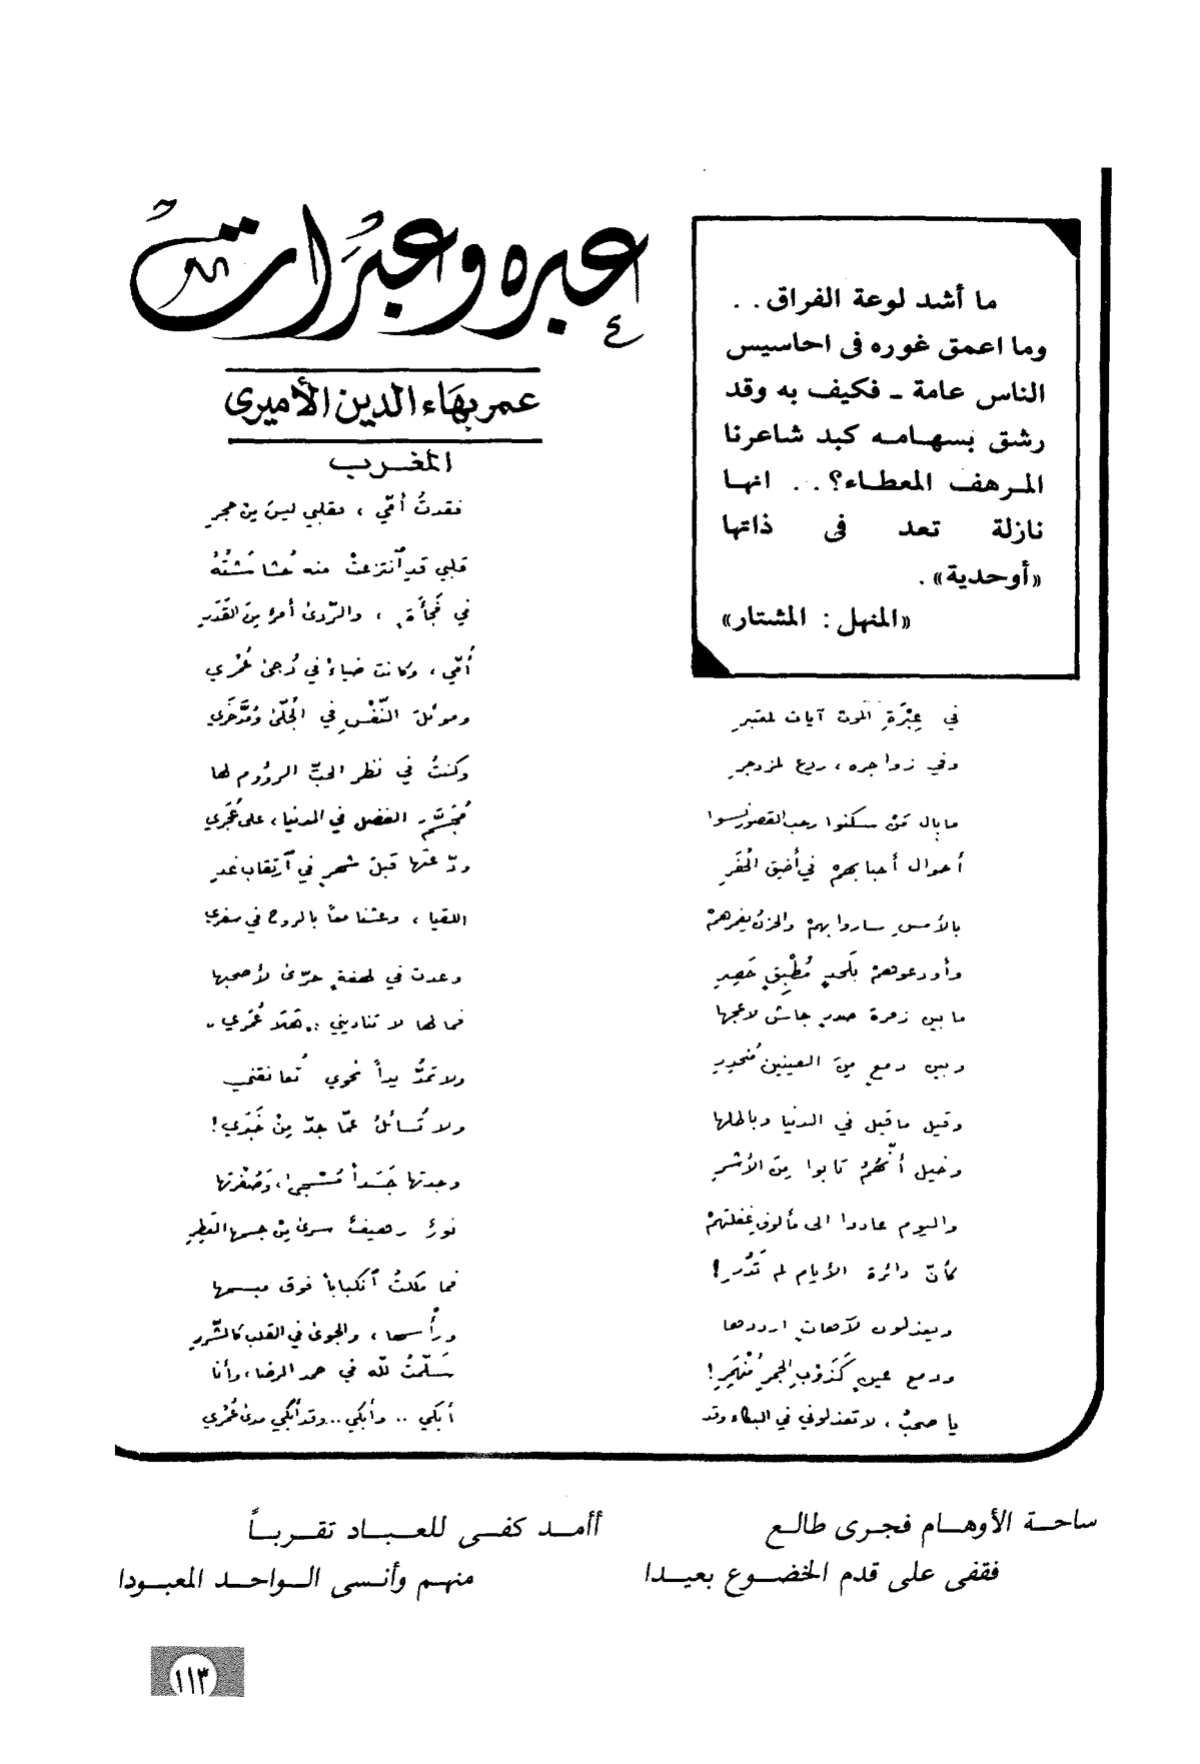 عبره وعبرات
عمر بهاء الدين الأميرى
المغرب
ما أشد لوعة الفراق . .
وما اعمق غوره فى احاسيس
الناس عامة ـ فكيف به وقد
رشق بسهامه كبد شاعرنا
المرهف المعطاء؟ . . انها
نازلة تعد فى ذاتها
«أوحدية» .
«المنهل : المشتار»
في عِبْرَةِ الموت آيات لمعتبرِ
وفي زواجره ، ردع لمزدجرِ
ما بال مَنْ سكنوا رحب القصور نسوا
أحوال أحبابهمْ في أضيق الحُفَرِ
بالأمسِ ساروا بهمْ والحزنُ يغمرهمْ
وأودعوهمْ بلحدٍ مُطْبِقٍ حَصِرِ
ما بين زفرة صدرٍ جاش لاعجها
وبين دمعٍ مِنَ العينين مُنحدِرِ
وقيل ما قيل في الدنيا وباطلها
وخيل أنّهمُ تابوا مِنَ الأشرِ
واليوم عادوا الى مألوفِ غفلتهمْ
كأنّ دائرة الأيام لم تَدُرِ !
ويعذلون لآهاتٍ ارددها
ودمع عينٍ كَذَوْبِ الجمرِ مُنْهَمِرِ !
يا صحبُ ، لا تعذلوني في البكاء وقد
فقدتُ أمّي ، فقلبي ليسَ مِن حجرِ
قلبي قدِ ٱنتزعتْ منه حُشاشَتُهُ
في فَجأةٍ ، والرّدىٰ أمرٌ مِنَ القَدَرِ
أُمّي ، وكانت ضياءً في دُجىٰ عُمْري
وموئلَ النّفْسِ في الجُلّىٰ ومُدَّخَري
وكنتُ في نظر الحبِّ الرؤوم لها
مُجَسَّمَ الفضل في الدنيا ، على عُجَري
ودّعتها قبلَ شهرٍ في ٱرتقاب غدِ
اللقيا ، وعشنا معاً بالروح في سفري
وعدت في لهفةٍ حرّىٰ لأصحبها
فما لها لا تناديني : .. هَلا عُمَري ..
ولا تمدُّ يداً نحوي تُعانقني
ولا تُسائلُ عمّا جدّ مِنْ خَبَري !
وجدتها جَسَداً مُسْجىٰ ، وَصُفْرَتها
نورٌ رهيفٌ سرىٰ مِنْ جسمها العَطِرِ
فما مللتُ ٱنكباباً فوق مبسمها
ورأسها ، والجوىٰ في القلب كالشّررِ
سَلّمتُ للّه في حمد الرضا ، وأنا
أبكي .. وأبكي .. وقد أبكي مدىٰ عُمْري
ساحة الأوهام فجرى طالع
فقفى على قدم الخضوع بعيدا
أأمد كفى للعباد تقرباً
منهم وأنسى الواحد المعبودا
١١٣